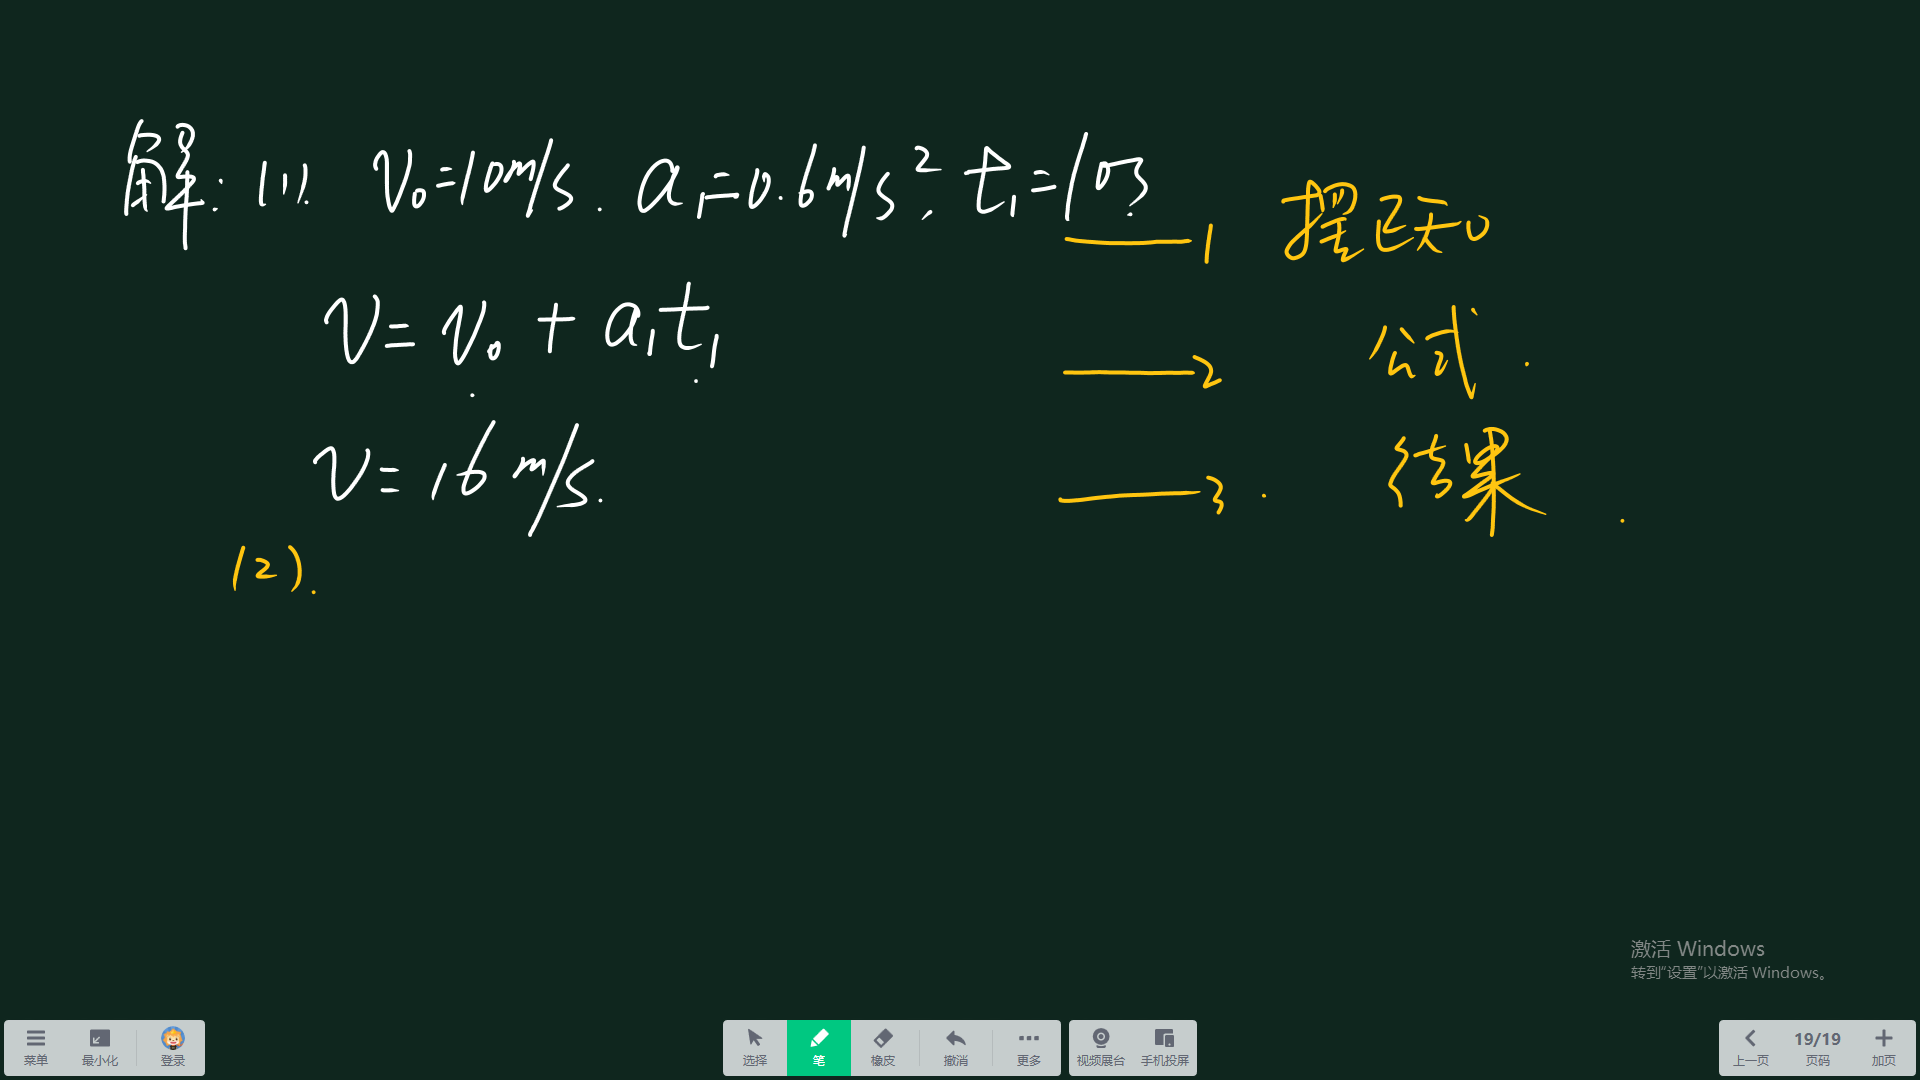 解:(1). v₀=10m/s. a₁=0.6m/s², t₁=10s.
——1 摆已知
v=v₀+a₁t₁
——2 公式.
v=16m/s.
——3. 结果.
(2).
激活 Windows
转到“设置”以激活 Windows。
菜单 最小化 登录 选择 笔 橡皮 撤消 更多 视频展台 手机投屏 上一页 19/19 页码 加页